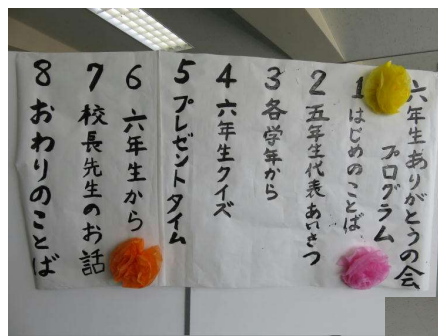 六年生ありがとうの会
プログラム
1 はじめのことば
2 五年生代表あいさつ
3 各学年から
4 六年生クイズ
5 プレゼントタイム
6 六年生から
7 校長先生のお話
8 おわりのことば